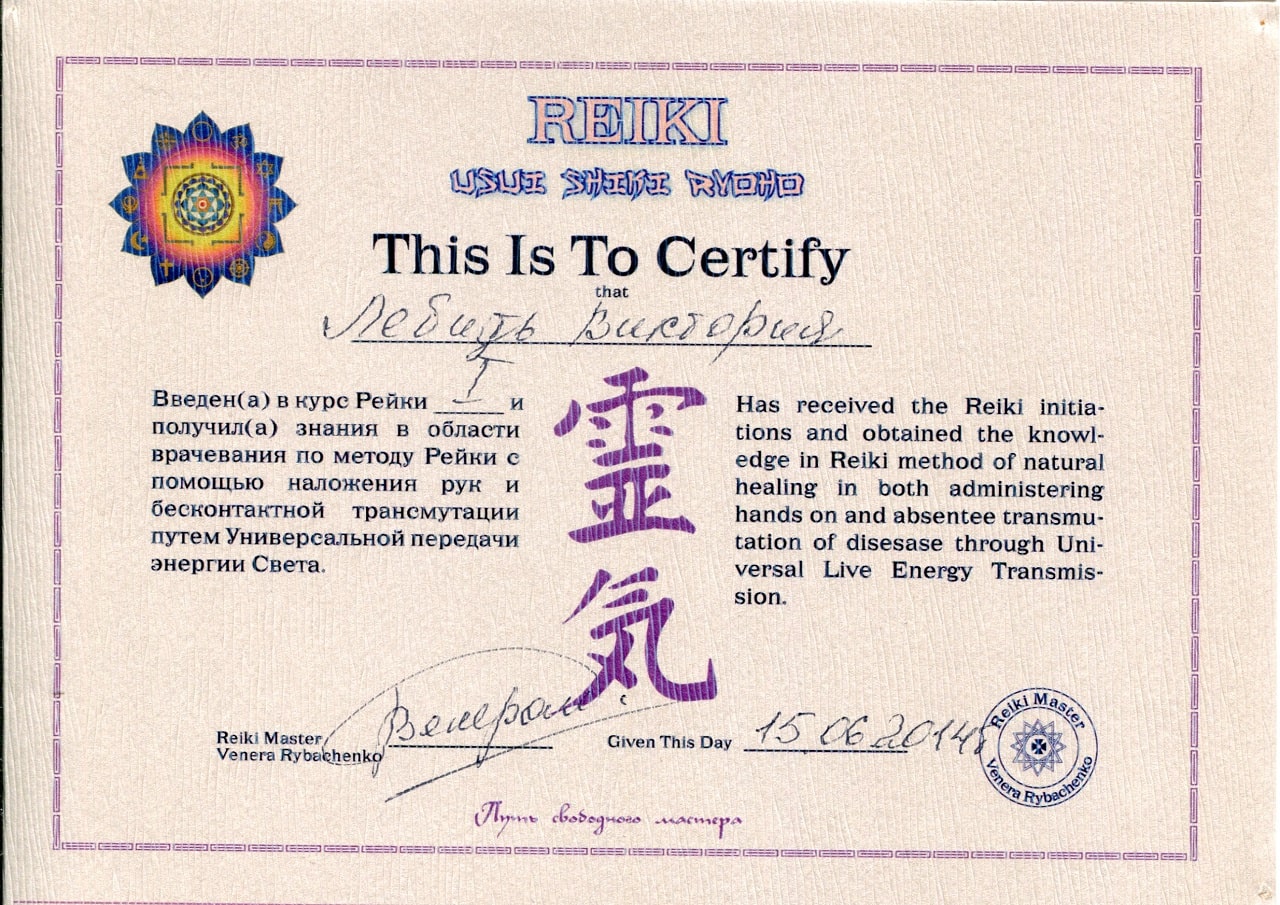 REIKI
USUI SHIKI RYOHO
This Is To Certify
that
Виктория
Введен(а) в курс Рейки I и
получил(а) знания в области
врачевания по методу Рейки с
помощью наложения рук и
бесконтактной трансмутации
путем Универсальной передачи
энергии Света.
靈
気
Has received the Reiki initia-
tions and obtained the knowl-
edge in Reiki method of natural
healing in both administering
hands on and absentee transmu-
tation of disesase through Uni-
versal Live Energy Transmis-
sion.
Reiki Master
Venera Rybachenko
Given This Day 15 06 2014
Reiki Master
Venera Rybachenko
Путь свободного мастера